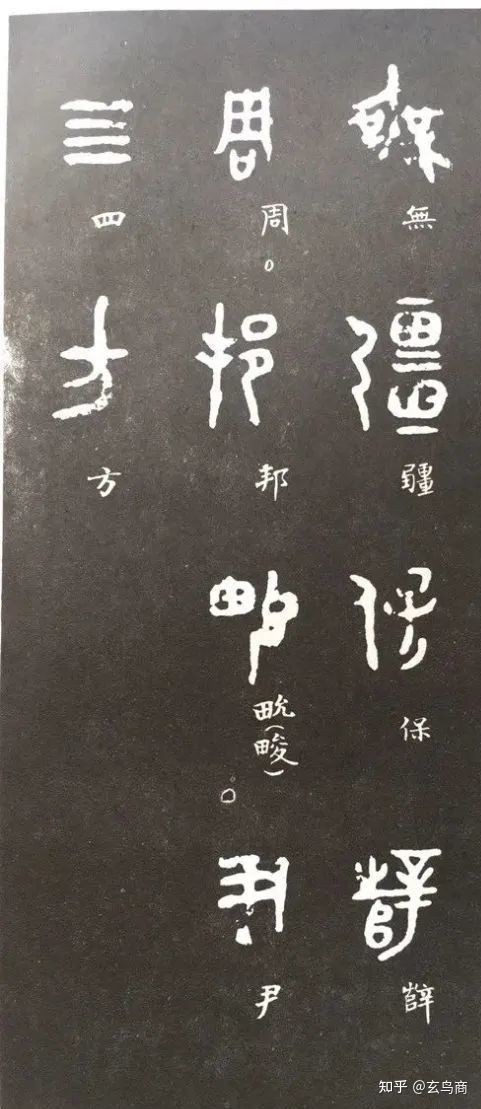 無疆保辥
周。邦畯(畯)。尹
四方
知乎 @玄鸟商